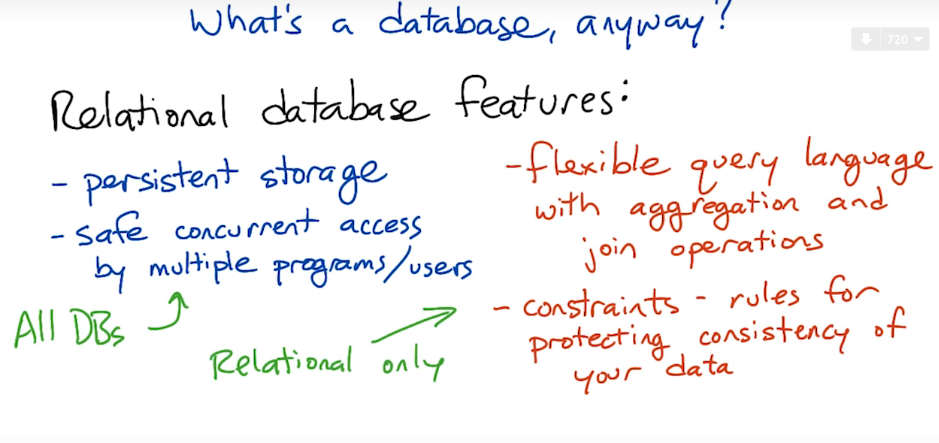 What's a database, anyway?
720
Relational database features:
- persistent storage
- safe concurrent access
by multiple programs/users
All DBs
- flexible query language
with aggregation and
join operations
- constraints - rules for
protecting consistency of
your data
Relational only